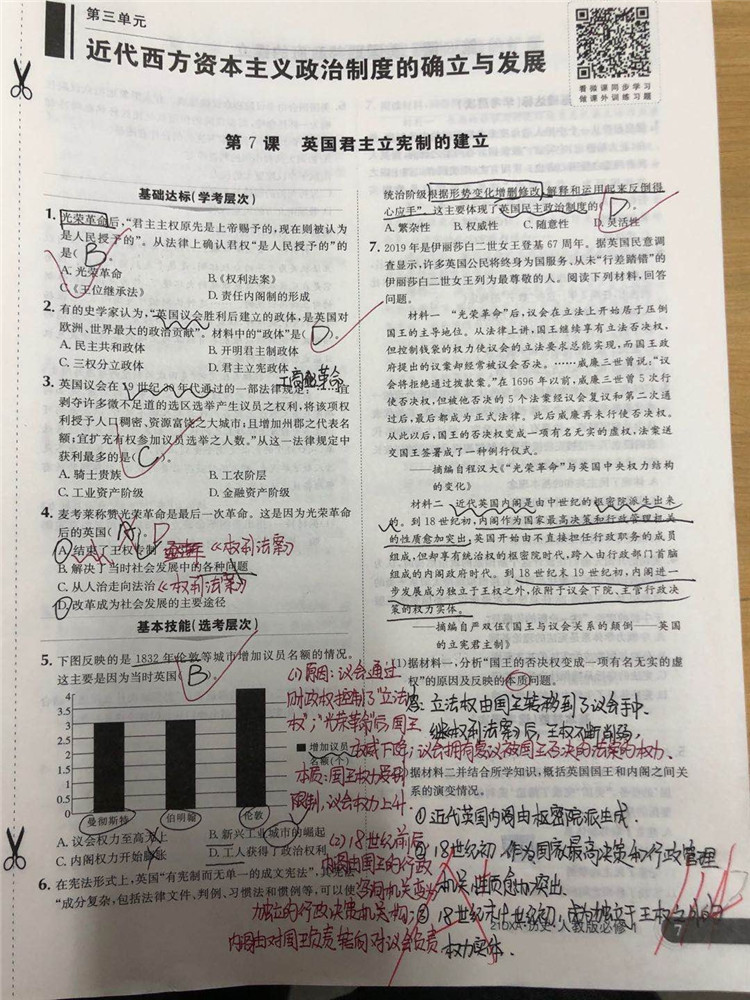 第三单元
近代西方资本主义政治制度的确立与发展
看微课同步学习
做课外训练习题
第7课 英国君主立宪制的建立
基础达标(学考层次)
1.光荣革命后,“君主主权原先是上帝赐予的,现在则被认
为是人民授予的”。从法律上确认君权“是人民授予的”的
是( B )
A.光荣革命 B.《权利法案》
C.《王位继承法》 D.责任内阁制的形成
2.有的史学家认为,“英国议会胜利后建立的政体,是英国对
欧洲、世界最大的政治贡献”。材料中的“政体”是( D )
A.民主共和政体 B.开明君主制政体
C.三权分立政体 D.君主立宪政体
工商业革命
3.英国议会在19世纪30年代通过的一部法律规定:“……宜
剥夺许多微不足道的选区选举产生议员之权利,将该项权
利授予人口稠密、资源富饶之大城市;且增加州郡之代表名
额;宜扩充有权参加议员选举之人数。”从这一法律规定中
获利最多的是( C )
A.骑士贵族 B.工农阶层
C.工业资产阶级 D.金融资产阶级
4.麦考莱称赞光荣革命是最后一次革命。这是因为光荣革命
后的英国( A ) D
A.结束了王权专制 《权利法案》
B.解决了当时社会发展中的各种问题
C.从人治走向法治 《权利法案》
D.改革成为社会发展的主要途径
基本技能(选考层次)
5.下图反映的是1832年伦敦等城市增加议员名额的情况。
这主要是因为当时英国( B )
4
3.5
3
2.5
2
1.5
1
0.5
0
曼彻斯特 伯明翰 伦敦
增加议员
名额(个)
A.议会权力至高无上 B.新兴工业城市的崛起
C.内阁权力开始膨胀 D.工人获得了政治权利
6.在宪法形式上,英国“有宪制而无单一的成文宪法”,
“成分复杂,包括法律文件、判例、习惯法和惯例等,可以使
统治阶级根据形势变化增删修改,解释和运用起来反倒得
心应手”。这主要体现了英国民主政治制度的( D )
A.繁杂性 B.权威性 C.随意性 D.灵活性
7.2019年是伊丽莎白二世女王登基67周年。据英国民意调
查显示,许多英国公民将终身为国服务、从未“行差踏错”的
伊丽莎白二世女王列为最尊敬的人。阅读下列材料,回答
问题。
材料一 “光荣革命”后,议会在立法上开始居于压倒
国王的主导地位。从法律上讲,国王继续享有立法否决权,
但控制钱袋的权力使议会的立法要求总能实现,而国王政
府提出的议案却经常被议会否决。……威廉三世曾说:“议
会将拒绝通过拨款案。”在1696年以前,威廉三世曾5次行
使否决权,但被他否决的5个法案经议会复议和第二次通
过后,最后都成为正式法律。此后威廉再未行使否决权。
从此以后,国王的否决权变成一项有名无实的虚权,法案送
交国王签署成了一种例行仪式。
——摘编自程汉大《“光荣革命”与英国中央权力结构
的变化》
材料二 近代英国内阁是由中世纪的枢密院派生出来
的。到18世纪初,内阁作为国家最高决策和行政管理机关
的性质愈加突出,英国开始由不直接担任行政职务的成员
组成,但却享有统治权的枢密院时代,跨入由行政部门首脑
组成的内阁政府时代。到18世纪末19世纪初,内阁进一
步发展成为独立于王权之外,依附于议会下院,主管行政决
策的权力实体。
——摘编自严双伍《国王与议会关系的颠倒——英国
的立宪君主制》
(1)据材料一,分析“国王的否决权变成一项有名无实的虚
权”的原因及反映的本质问题。
答:立法权由国王转移到了议会手中.
继《权利法案》后,王权不断削弱,
(1)原因:议会通过
财政权控制了“立法
权”;“光荣革命”后,国王
权威下降;议会拥有复议被国王否决的法案的权力.
本质:国王权力受到
限制,议会权力上升.
(2)据材料二并结合所学知识,概括英国国王和内阁之间关
系的演变情况。
①近代英国内阁由枢密院派生成.
②18世纪初 作为国家最高决策和行政管理
机关性质愈加突出.
③18世纪末19世纪初,成为独立于王权之外的
权力实体.
(2)18世纪前后
内阁由国王的行政
咨询机关变为
独立的行政决策机关机构;
内阁由对国王负责转向对议会负责
21DXA·历史·人教版必修1
7